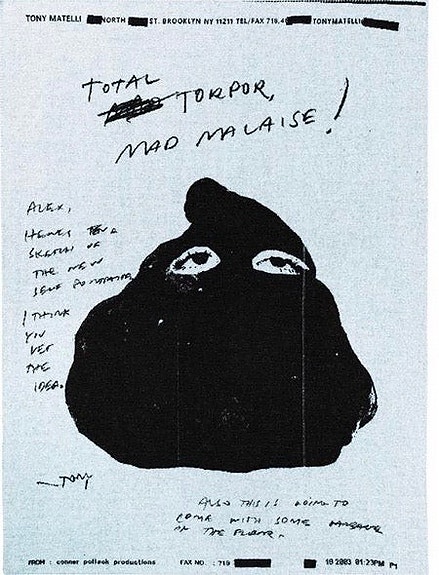 TONY MATELLI NORTH ST. BROOKLYN NY 11211 TEL/FAX 718.4 TONYMATELLI
TOTAL
TORPOR,
MAD MALAISE!
ALEX,
HERES
SKETCH OF
THE NEW
SELF PORTRAIT,
I THINK
YOU
GET
THE
IDEA.
—TONY
ALSO THIS IS GOING TO
COME WITH SOME GARBAGE
ON THE FLOOR.
FROM : conner pollack productions FAX NO. : 719 10 2003 01:23PM P1